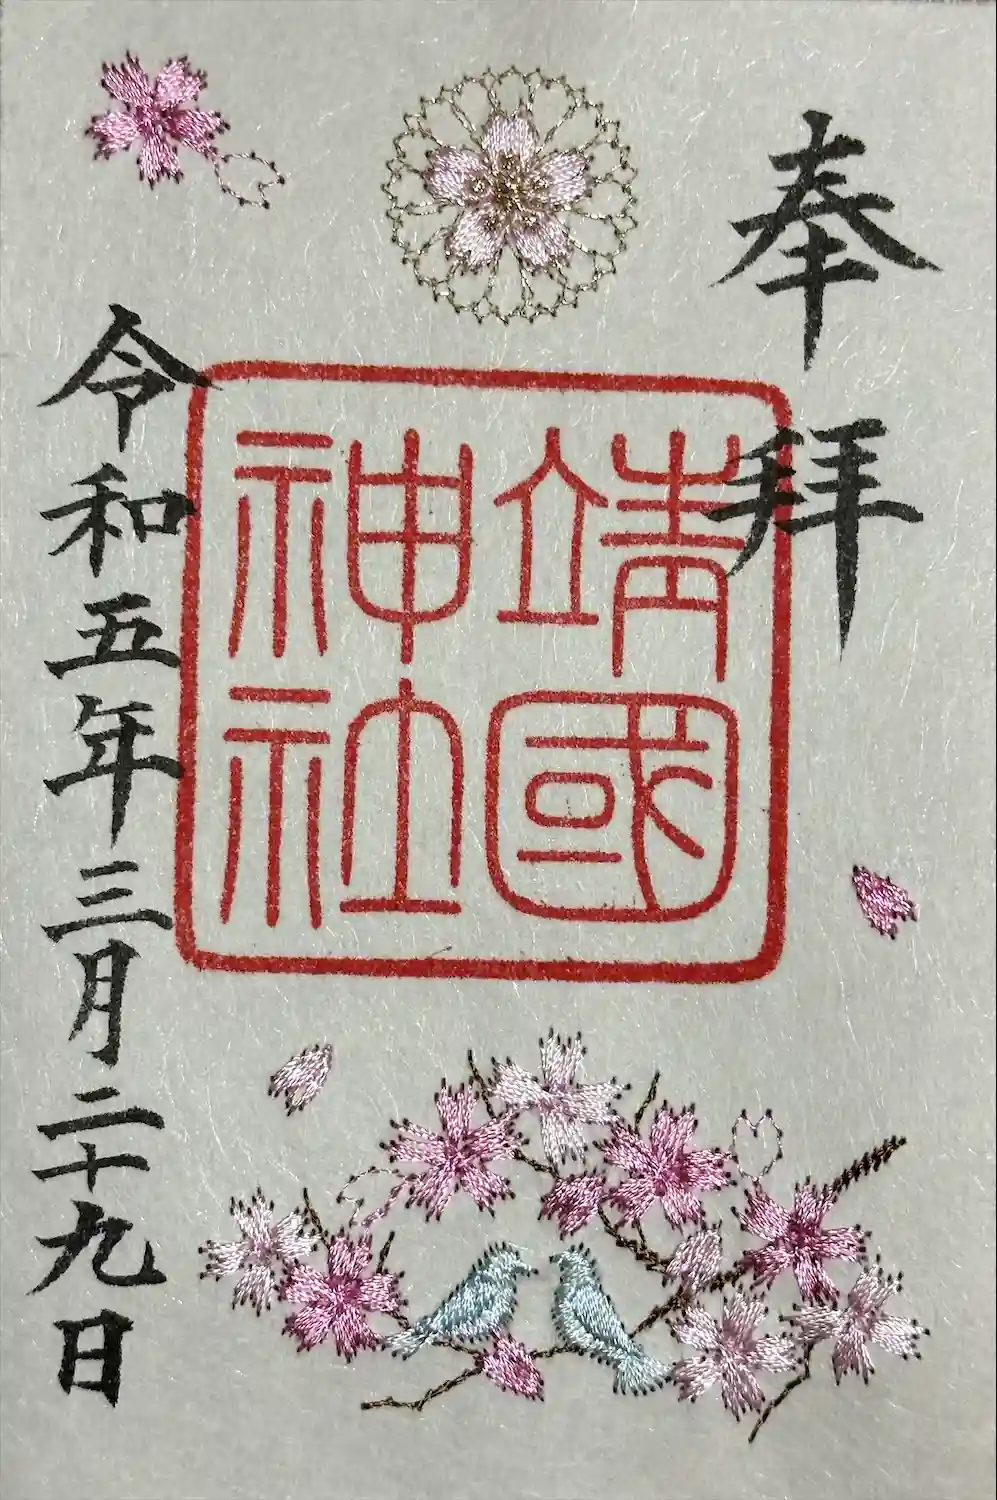 奉拝
靖國
神社
令和五年三月二十九日